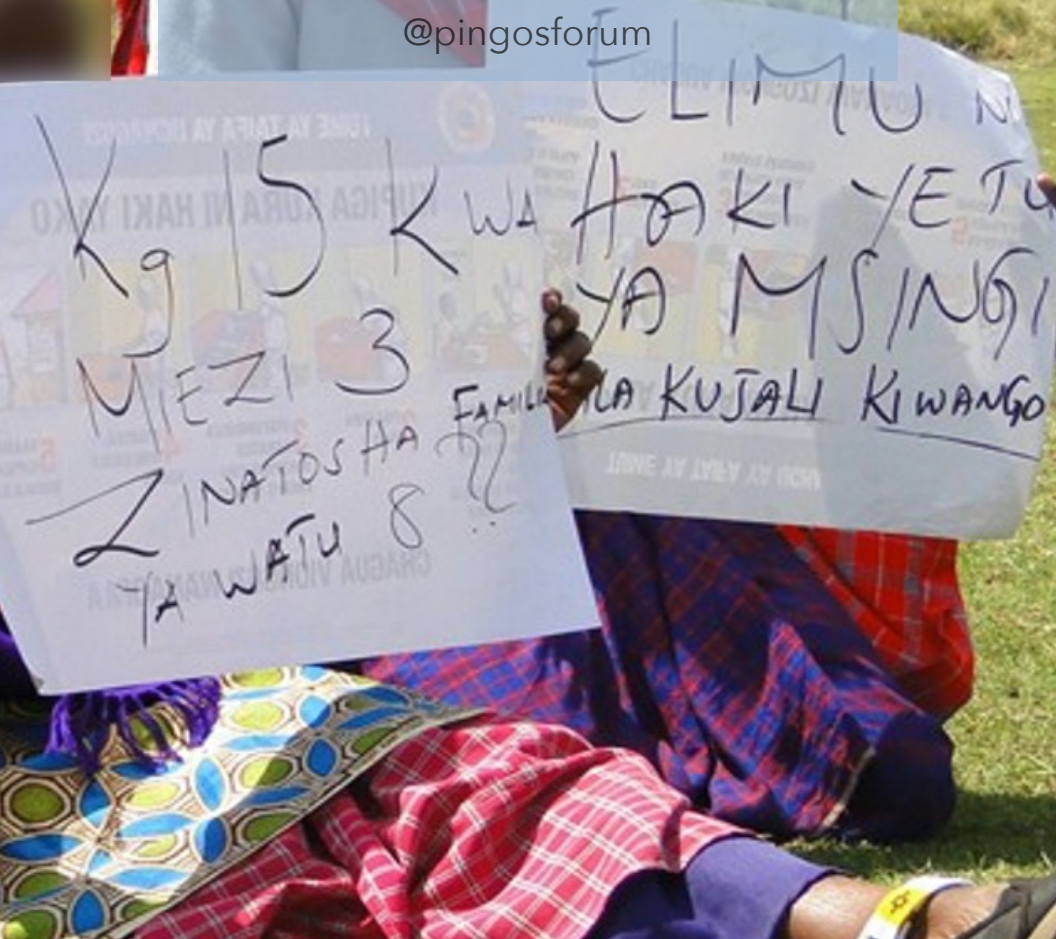 @pingosforum
Kg 15 KWA
MIEZI 3
ZINATOSHA FAMILI
YA WATU 8 ??
ELIMU NI
HAKI YETU
YA MSINGI
ILA KUJALI KIWANGO